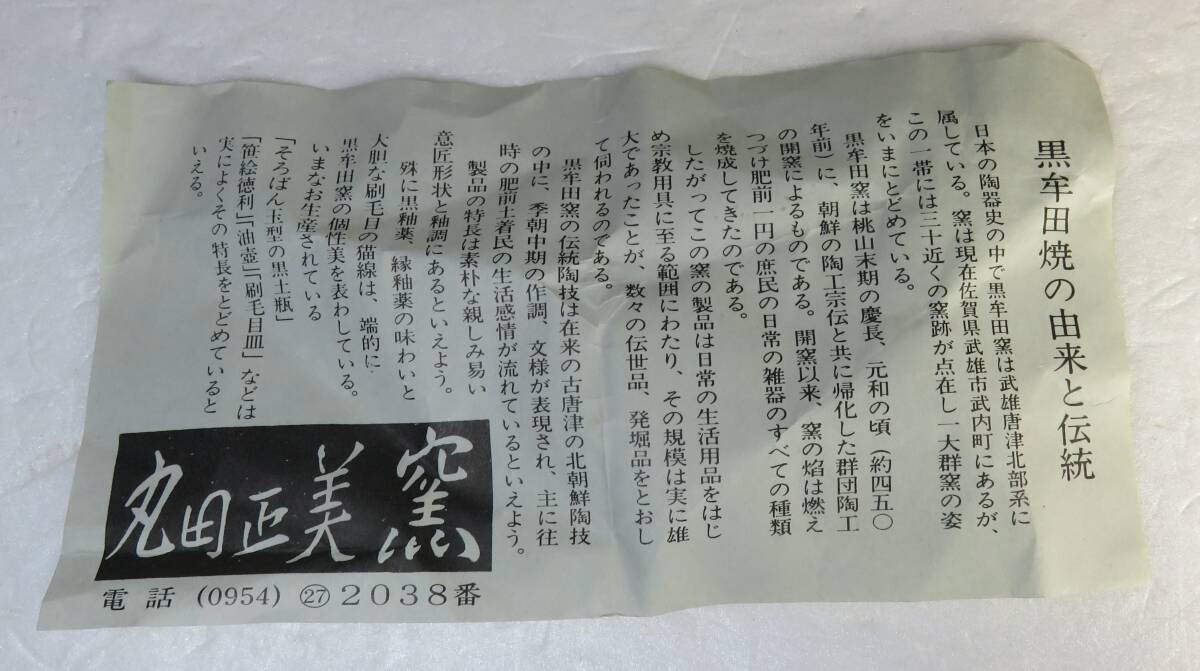 黒牟田焼の由来と伝統
日本の陶器史の中で黒牟田窯は武雄唐津北部系に
属している。窯は現在佐賀県武雄市武内町にあるが、
この一帯には三十近くの窯跡が点在し一大群窯の姿
をいまにとどめている。
黒牟田窯は桃山末期の慶長、元和の頃(約四五〇
年前)に、朝鮮の陶工宗伝と共に帰化した群団陶工
の開窯によるものである。開窯以来、窯の焰は燃え
つづけ肥前一円の庶民の日常の雑器のすべての種類
を焼成してきたのである。
したがってこの窯の製品は日常の生活用品をはじ
め宗教用具に至る範囲にわたり、その規模は実に雄
大であったことが、数々の伝世品、発掘品をとおし
て伺われるのである。
黒牟田窯の伝統陶技は在来の古唐津の北朝鮮陶技
の中に、季朝中期の作調、文様が表現され、主に往
時の肥前土着民の生活感情が流れているといえよう。
製品の特長は素朴な親しみ易い
意匠形状と釉調にあるといえよう。
殊に黒釉薬、縁釉薬の味わいと
大胆な刷毛目の猫線は、端的に
黒牟田窯の個性美を表わしている。
いまなお生産されている
「そろばん玉型の黒土瓶」
「笹絵徳利」「油壺」「刷毛目皿」などは
実によくその特長をとどめていると
いえる。
丸田正美窯
電話 (0954) ㉗ 2038番